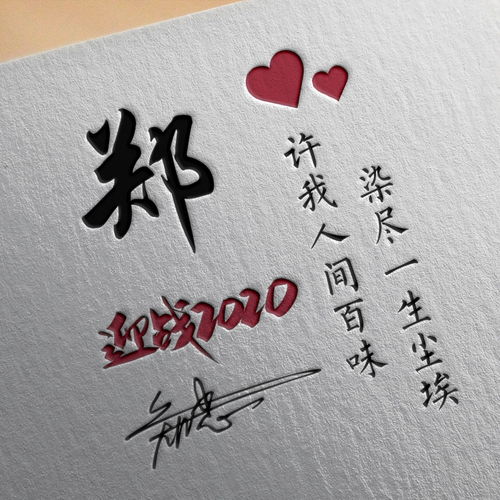 郑
许我人间百味
染尽一生尘埃
迎战2020